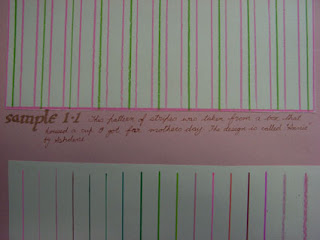 sample 1.1 This pattern of stripes was taken from a box that
housed a cup I got for mothers day. The design is called
by